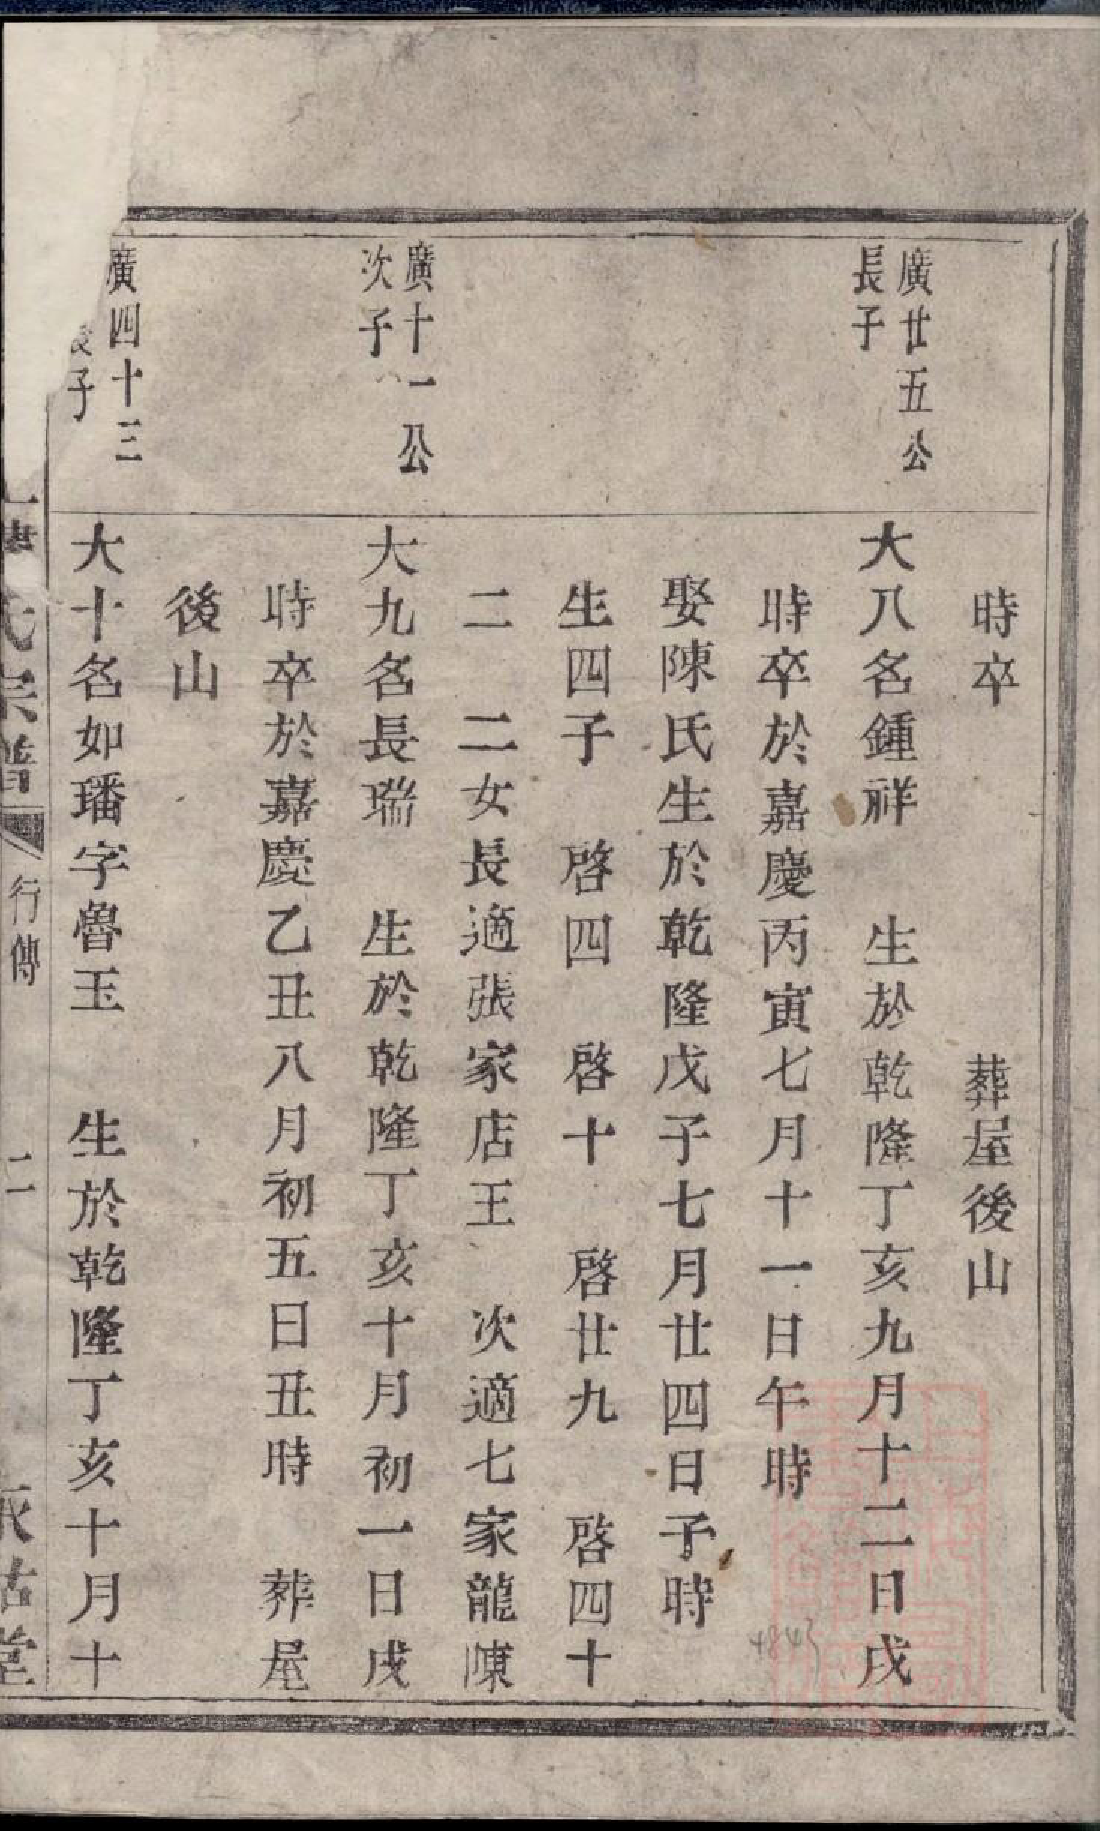 時卒 葬屋後山
廣廿五公
長子
大八名鍾祥 生於乾隆丁亥九月十二日戌
時卒於嘉慶丙寅七月十一日午時
娶陳氏生於乾隆戊子七月廿四日子時
生四子 啓四 啓十 啓廿九 啓四十
二 二女長適張家店王 次適七家龍陳
廣十一公
次子
大九名長瑞 生於乾隆丁亥十月初一日戌
時卒於嘉慶乙丑八月初五日丑時 葬屋
後山
廣四十三
子
大十名如璠字魯玉 生於乾隆丁亥十月十
氏宗譜 行傳 二 堂
4843